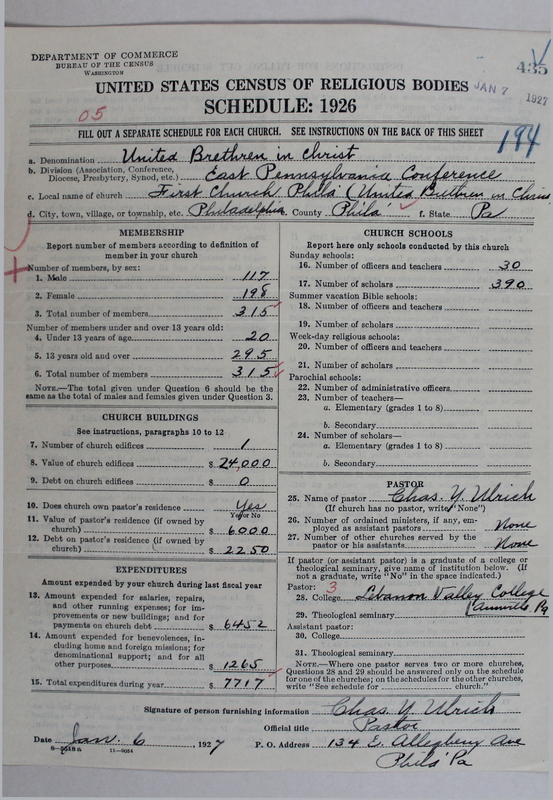 DEPARTMENT OF COMMERCE
BUREAU OF THE CENSUS
WASHINGTON
435
UNITED STATES CENSUS OF RELIGIOUS BODIES
JAN 7 1927
SCHEDULE: 1926
05
FILL OUT A SEPARATE SCHEDULE FOR EACH CHURCH. SEE INSTRUCTIONS ON THE BACK OF THIS SHEET
194
a. Denomination United Brethren in Christ
b. Division (Association, Conference, Diocese, Presbytery, Synod, etc.) East Pennsylvania Conference
c. Local name of church First Church Phila (United Brethren in Chris
d. City, town, village, or township, etc. Philadelphia e. County Phila f. State Pa
MEMBERSHIP
Report number of members according to definition of
member in your church
Number of members, by sex:
1. Male 117
2. Female 198
3. Total number of members 315
Number of members under and over 13 years old:
4. Under 13 years of age 20
5. 13 years old and over 295
6. Total number of members 315
NOTE.—The total given under Question 6 should be
same as the total of males and females given under Question 3.
CHURCH BUILDINGS
See instructions, paragraphs 10 to 12
7. Number of church edifices 1
8. Value of church edifices $ 24,000
9. Debt on church edifices $ 0
10. Does church own pastor's residence Yes
Yes or No
11. Value of pastor's residence (if owned by
church) $ 6000
12. Debt on pastor's residence (if owned by
church) $ 2250
EXPENDITURES
Amount expended by your church during last fiscal year
13. Amount expended for salaries, repairs,
and other running expenses; for im-
provements or new buildings; and for
payments on church debt $ 6452
14. Amount expended for benevolences, in-
cluding home and foreign missions; for
denominational support; and for all
other purposes 1265
15. Total expenditures during year $ 7717
CHURCH SCHOOLS
Report here only schools conducted by this church
Sunday schools:
16. Number of officers and teachers 30
17. Number of scholars 390
Summer vacation Bible schools:
18. Number of officers and teachers
19. Number of scholars
Week-day religious schools:
20. Number of officers and teachers
21. Number of scholars
Parochial schools:
22. Number of administrative officers
23. Number of teachers—
a. Elementary (grades 1 to 8)
b. Secondary
24. Number of scholars—
a. Elementary (grades 1 to 8)
b. Secondary
PASTOR
25. Name of pastor Chas. Y. Ulrich
(If church has no pastor, write "None")
26. Number of ordained ministers, if any, em-
ployed as assistant pastors None
27. Number of other churches served by the
pastor or his assistants None
If pastor (or assistant pastor) is a graduate of a college or
theological seminary, give name of institution below. (If
not a graduate, write "No" in the space indicated.)
Pastor: 3
28. College Lebanon Valley College
(Annville Pa
29. Theological seminary
Assistant pastor:
30. College
31. Theological seminary
NOTE.—Where one pastor serves two or more churches,
Questions 28 and 29 should be answered only on the schedule
for one of the churches; on the schedules for the other churches,
write "See schedule for church."
Signature of person furnishing information Chas. Y. Ulrich
Official title Pastor
Date Jan. 6, 1927 P. O. Address 134 E. Allegheny Ave
Phila Pa
11—9084